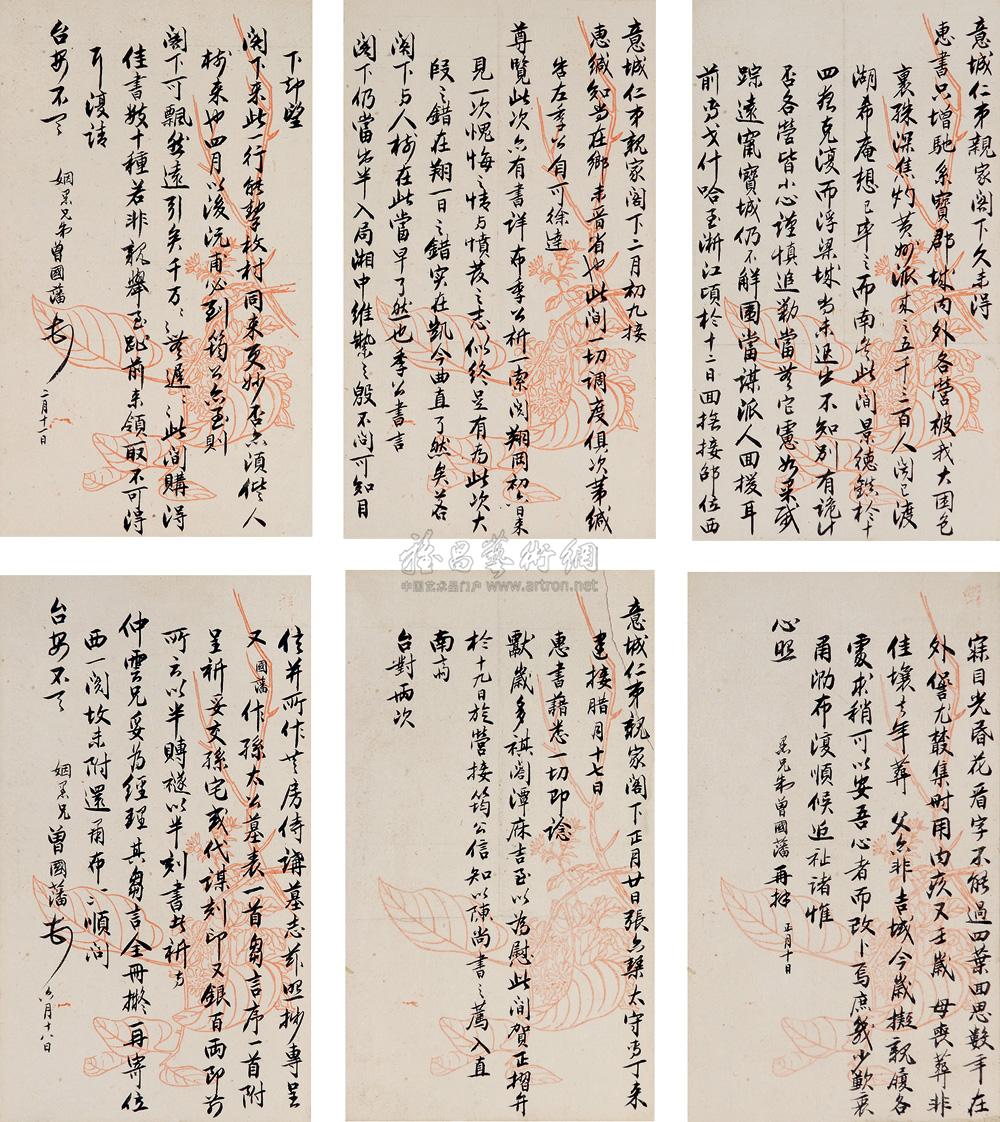 意城仁弟親家閣下久未得
惠書只增馳系寶郡城內外各營被我大圍包
裹殊深焦灼黃妙派來之五千二百人聞已渡
湖希庵想已率之而南矣此間景德鎮於十
四夜克復而浮梁城尚未退出不知別有詭計
否各營皆小心謹慎追勦當無它慮如果賊
踪遠竄寶城仍不解圍當謀派人回援耳
前專戈什哈至浙江頃於十二日回接邵位西
意城仁弟親家閣下二月初九接
惠緘知尚在鄉未晉省也此間一切調度俱次第緘
告左季公自可徐達
尊覽此次亦有書詳布季公祈一索閱翔岡初六日來
見一次愧悔之情與憤發之志似終足有為此次大
段之錯在翔一日之錯實在凱今曲直了然矣若
閣下與人樹在此當早了然也季公書言
閣下仍當出半入局湘中維縶之殷不問可知目
下却望
閣下來此一行能挈枚村同來更妙否亦須偕人
樹來也四月以後沅甫必到筠公亦至則
閣下可飄然遠引矣千萬千萬無遲無遲此間購得
佳書數十種若非親舉玉趾前來領取不可得
耳復請
台安不一
姻愚兄弟曾國藩頓
二月十一日
寐目光昏花看字不能過四葉回思數年在
外讐尤叢集時用內疚又壬歲 母喪葬非
佳壤去年葬 父亦非吉域今歲擬親履各
處求稍可以安吾心者而改卜焉庶幾少歉衷
甫泐布復順候近祉諸惟
心照
愚兄弟曾國藩再拜 正月十日
意城仁弟親家閣下正月廿日張六琹太守專丁來
建接腊月十七日
惠書藉悉一切即諗
獻歲多祺閤潭庥吉至以為慰此間賀正摺弁
於十九日於營接筠公信知以陳尚書之薦入直
南齋
台對兩次
信并所作叔房侍講墓志茲照抄專呈
又國藩作孫太公墓表一首芻言序一首附
呈祈妥交孫宅或代謀刻印又銀百兩即前
所云以半賻襚以半刻書者祈專
仲雲兄妥為經理其芻言全冊擬再寄位
西一閱故未附還甬布一一順問
台安不一
姻愚兄曾國藩頓
六月十八日
雅昌藝術網
中国艺术品门户 www.artron.net